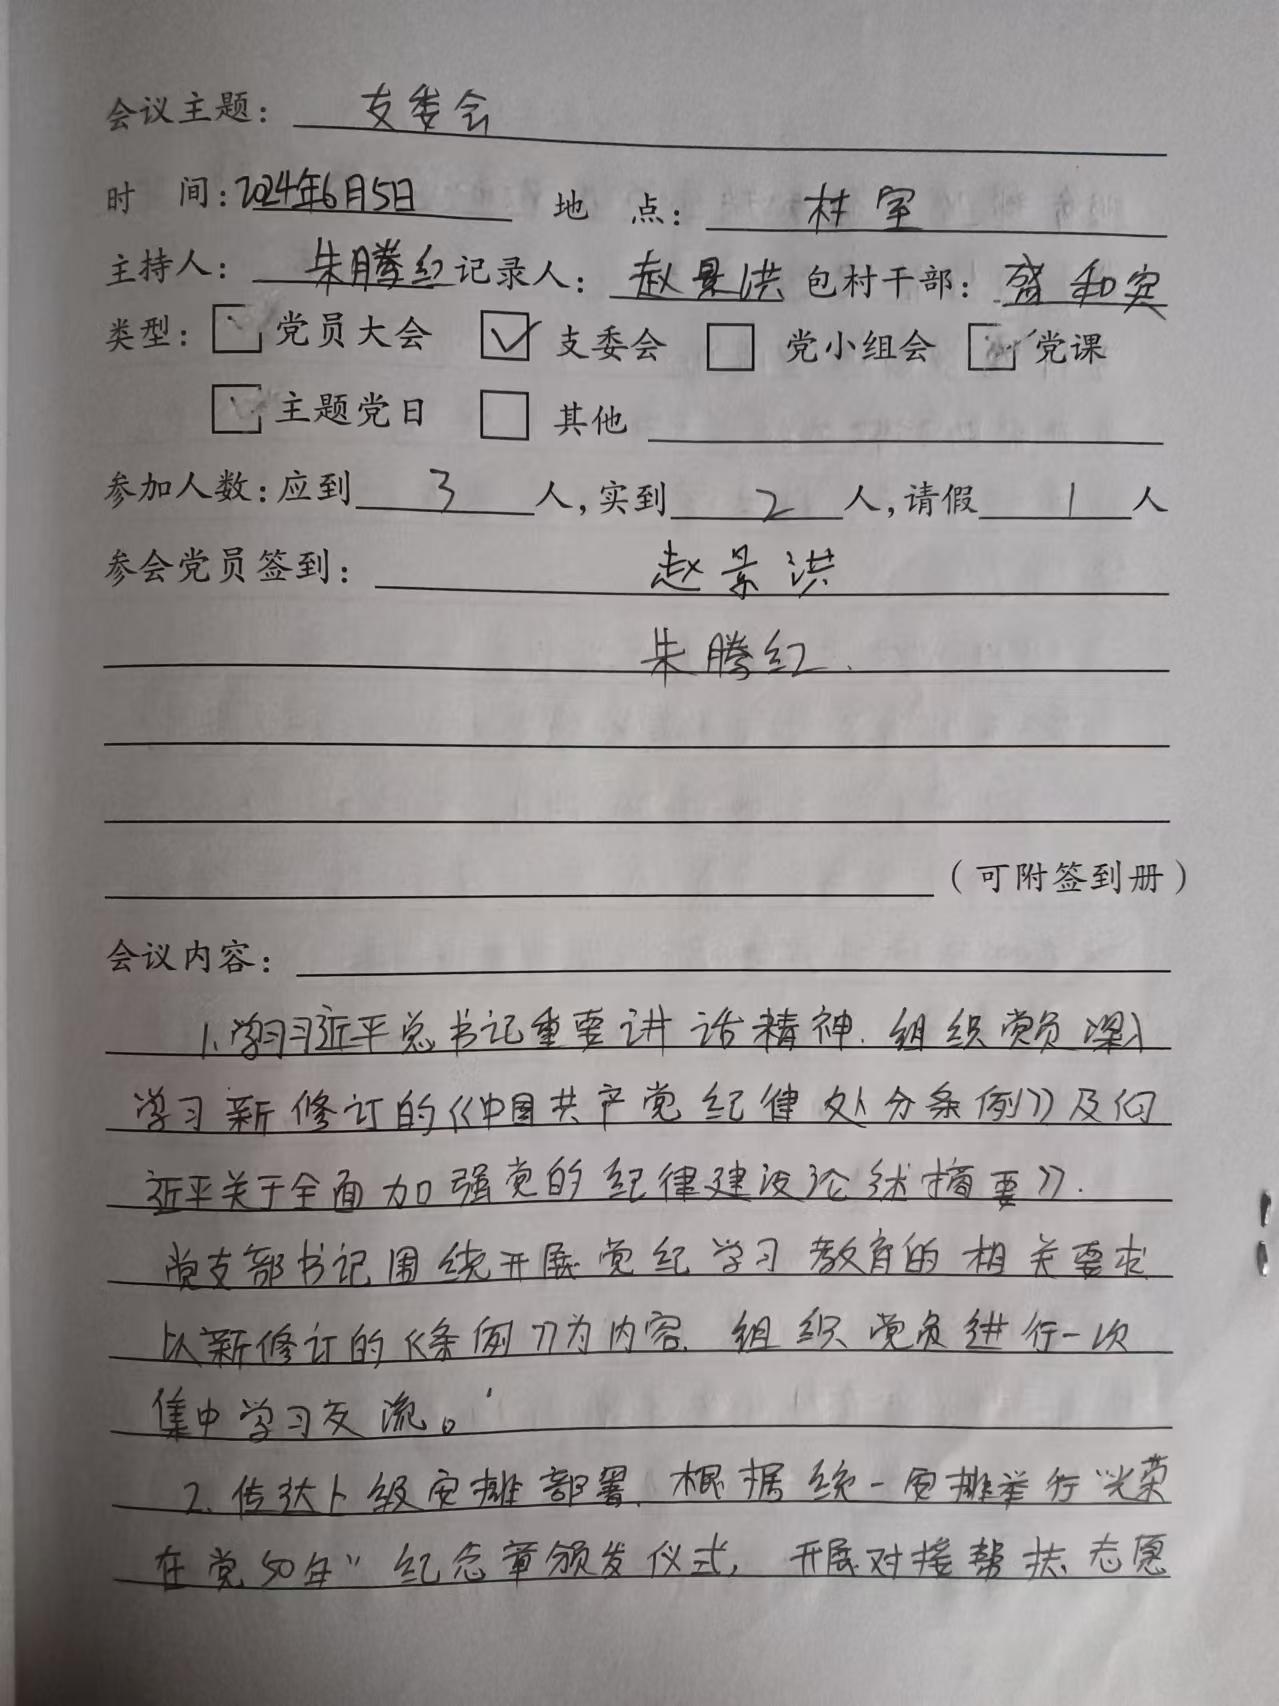 会议主题： 支委会
时 间：2024年6月5日 地 点： 村室
主持人： 朱腾红 记录人： 赵景洪 包村干部： 盛和实
类型： 党员大会 ✓ 支委会 党小组会 党课
主题党日 其他
参加人数：应到 3 人，实到 2 人，请假 1 人
参会党员签到： 赵景洪
朱腾红.
（可附签到册）
会议内容：
1.学习习近平总书记重要讲话精神.组织党员深入
学习新修订的《中国共产党纪律处分条例》及《习
近平关于全面加强党的纪律建设论述摘要》.
党支部书记围绕开展党纪学习教育的相关要求
以新修订的《条例》为内容.组织党员进行一次
集中学习交流。
2.传达上级安排部署.根据统一安排举行“光荣
在党50年”纪念章颁发仪式，开展对接帮扶、志愿